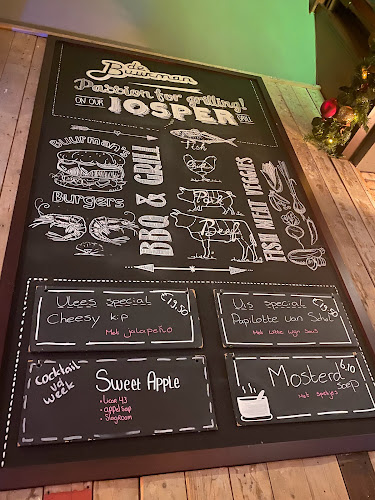 de Buurman
Passion for grilling!
ON OUR JOSPER GRILL
BUURMAN'S
Burgers
BBQ & GRILL
Fish
Pork
Beef
FISH MEAT VEGGIES
Vlees special €19,50
Cheesy kip
Met jalapeño
Vis special
Papilotte van Schol
Met witte wijn saus
Cocktail
v/d
week
Sweet Apple
• Licor 43
• appelsap
• Slagroom
Mosterd
soep
Met spekjes